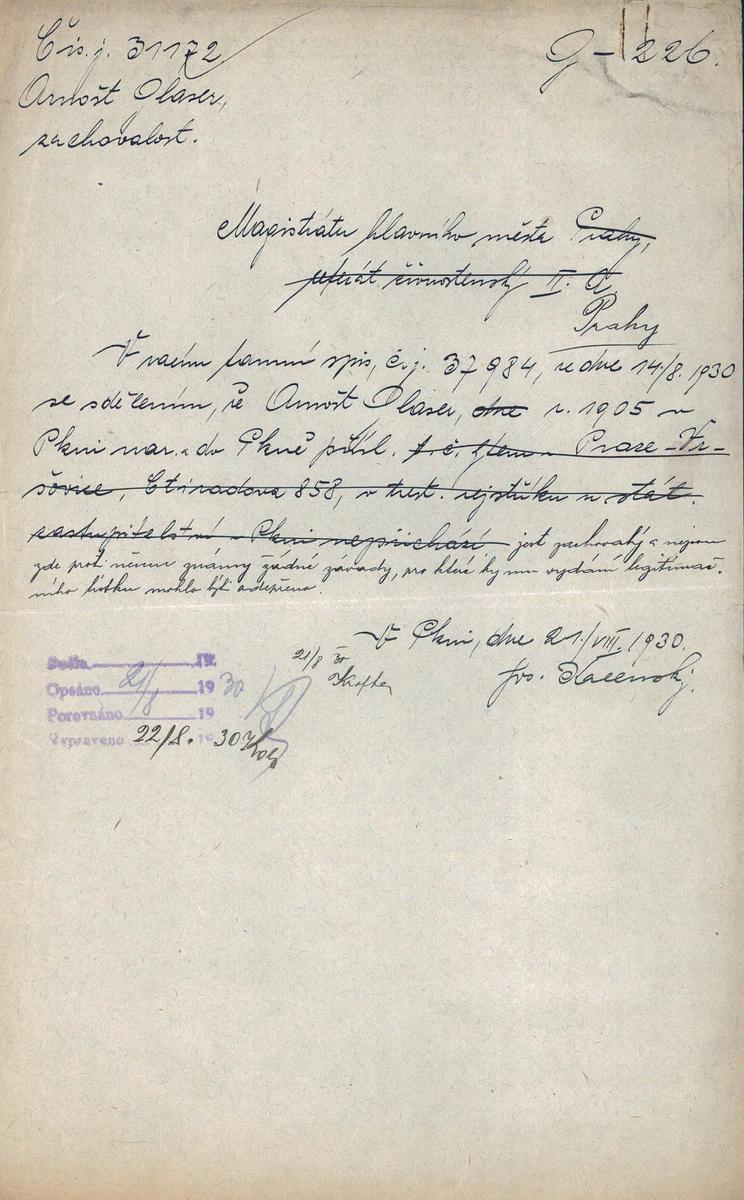 Čís. j. 31172
G – 226.
Arnošt Glaser,
zachovalost.
Magistrátu hlavního města Prahy,
referát živnostenský II. A
Prahy
V vrácím tamní spis, č. j. 37984, ze dne 14./8. 1930
se sdělením, že Arnošt Glaser, dne r. 1905 v
Plzni nar. a do Plzně přísl. t. č. v Praze – Vr-
šovice, Ctiradova 858, v trest. rejstříku u stát.
zastupitelství v Plzni nepřichází jest zachovalý a nejsou
zde proti němu známy žádné závady, pro které by mu vydání legitimač-
ního lístku mohlo býti odepřeno.
V Plzni, dne 21./VIII. 1930.
21/8 30
Došlo 19
Opsáno 21/8 1930
Porovnáno 19
Vypraveno 22/8. 1930